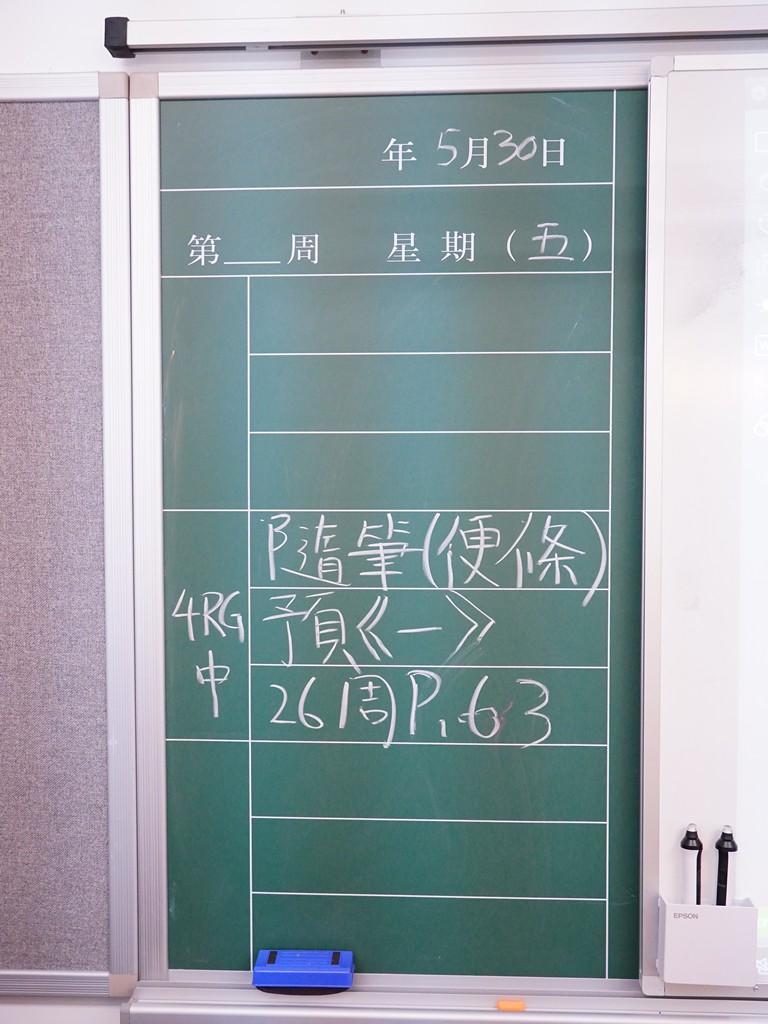 年 5月30日
第___周 星期（五）
隨筆(便條)
4RG
中
預《一》
26周P.63
EPSON